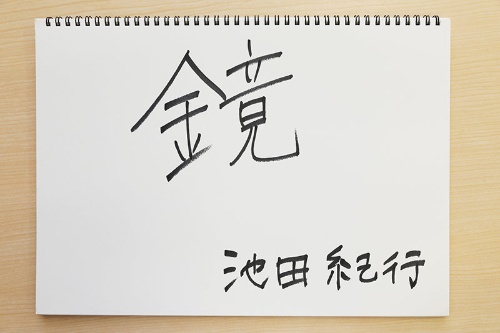 鏡
池田紀行